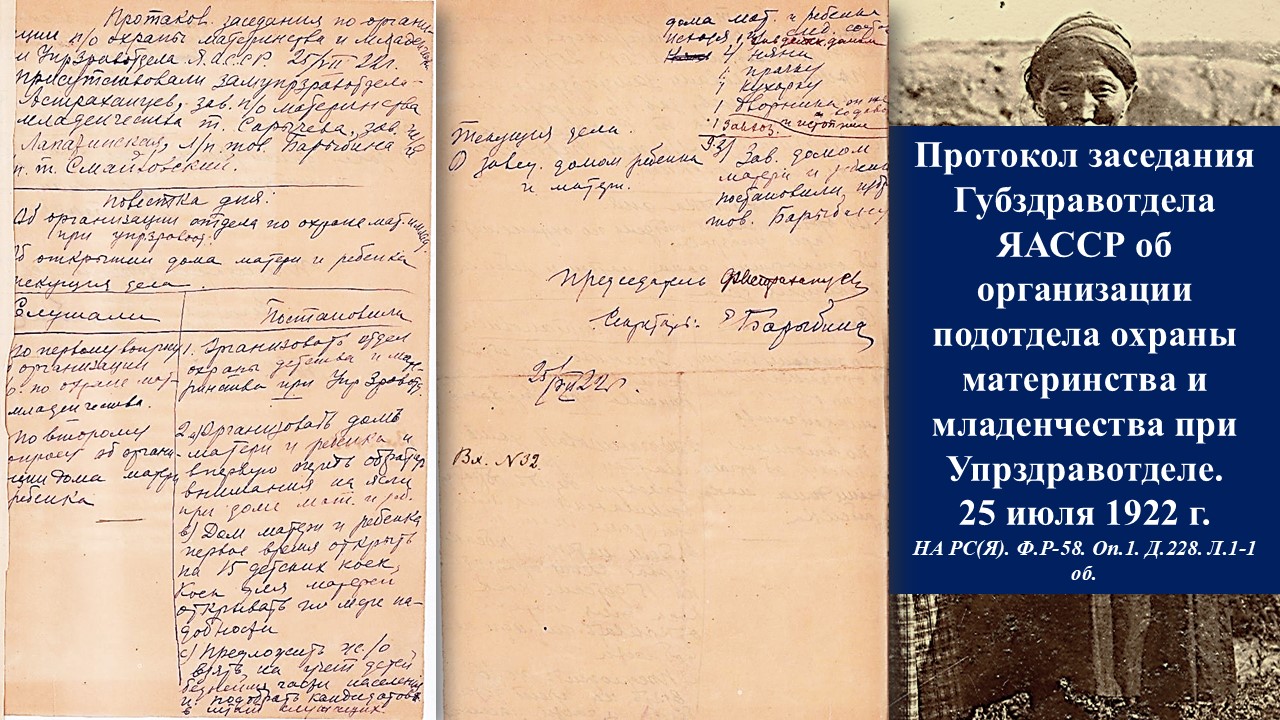 Протаков. заседания по органи-
ции п/о охраны материнства и младенчес.
и Упрздравотдела Я.АССР 25/VII-22 г.
присутствовали замупрздравотдела-
Астраханцев, зав. п/о материнства
младенчества т. Сарычева, зав.
Лапаринская, тов Барыбина
п. т. Смайловский.
повестка дня:
Об организации отдела по охране мат. и млад.
при упрздравот.
Об открытии дома матери и ребенка
текущия дела.
Слушали
Постановили
По первому вопросу
организации
по охране мат-
младенчества.
1. Организовать отдел
охраны детства и мате-
ринства при УпрЗдравотд.
По второму
вопросу об органи-
ции дома матери
ребенка
2 а) Организовать домъ
матери и ребенка и
внимания на ясли
при доме мат. и реб.
в) Дом матери и ребенка
первое время открыть
на 15 детских коек,
коек для матерей
открывать по мере на-
добности
с) Предложить ж/о
взять на учет детей
беднейшей части населения
и подобрать кандидатов
дома мат. и ребенка
1 Зав. детск. домом
2 няни
1 прачку
1 кухарку
1 Дворника он же
водовоз
1 Завхоз. и истопник
Текущия дела.
О завед. домом ребенка
и матери.
3) Зав. домом
матери и ребенка
постановили, избр.
тов. Барыбину
Председатель ФАстраханцев
Секретарь: Барыбина
25/VII 22 г.
Вх. №32
Протокол заседания
Губздравотдела
ЯАССР об
организации
подотдела охраны
материнства и
младенчества при
Упрздравотделе.
25 июля 1922 г.
НА РС(Я). Ф.Р-58. Оп.1. Д.228. Л.1-1
об.